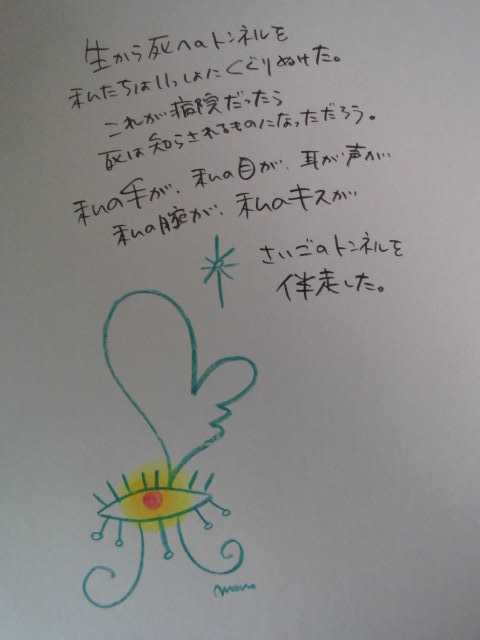 生から死へのトンネルを
私たちはいっしょにくぐりぬけた。
これが病院だったら
死は知らされるものになっただろう。
私の手が、私の目が、耳が声が
私の腕が、私のキスが
さいごのトンネルを
伴走した。